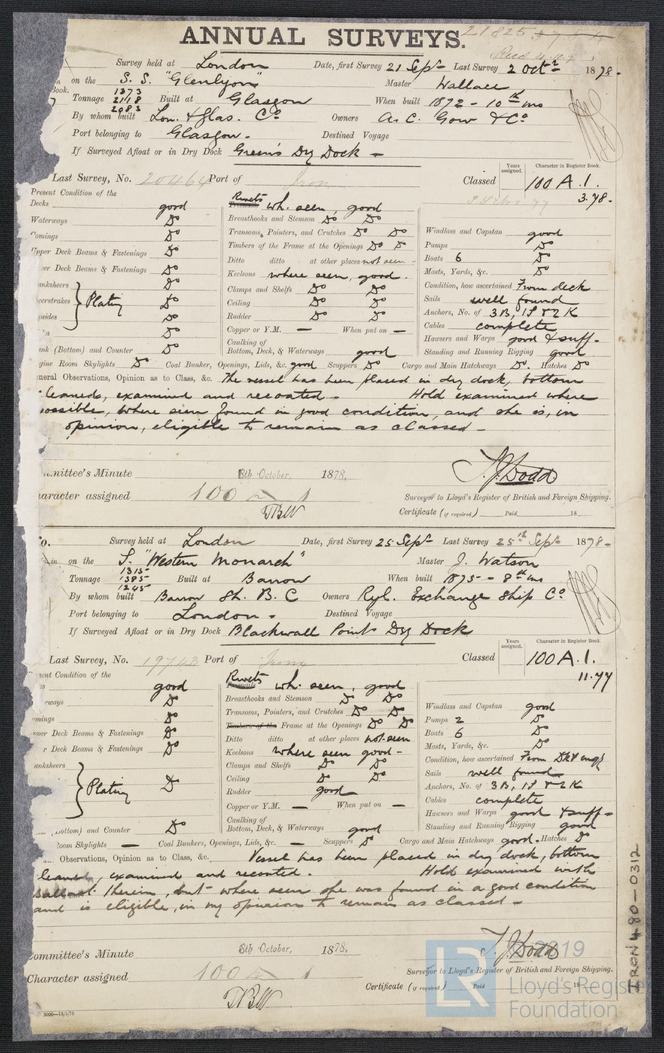 ANNUAL SURVEYS.
Survey held at London Date, first Survey 21 Sept Last Survey 2 Oct 1878-
on the S. S. "Glenlyon" Master Wallace
Book. 1373
Tonnage 2118 Built at Glasgow When built 1872 - 10th mo
2083
By whom built Lon. & Glas. Co Owners A. C. Gow & Co
Port belonging to Glasgow. Destined Voyage
If Surveyed Afloat or in Dry Dock Green's Dry Dock -
Last Survey, No. 20464 Port of Iron Classed
Years assigned. Character in Register Book.
100 A. 1.
3.78.
Present Condition of the
Decks good
Waterways Do
Comings Do
Upper Deck Beams & Fastenings Do
er Deck Beams & Fastenings Do
anksheers Do
eerstrakes Plating Do
psides Do
Do
ank (Bottom) and Counter Do
Rivets wh. seen, good
Breasthooks and Stemson Do Do
Transoms, Pointers, and Crutches Do Do
Timbers of the Frame at the Openings Do Do
Ditto ditto at other places not seen -
Keelsons where seen, good.
Clamps and Shelfs Do Do
Ceiling Do Do
Rudder Do Do
Copper or Y.M. — When put on —
Caulking of
Bottom, Deck, & Waterways good
Windlass and Capstan good
Pumps Do
Boats 6 Do
Masts, Yards, &c. Do
Condition, how ascertained From deck
Sails well found
Anchors, No. of 3B, 1S & 2K
Cables complete
Hawsers and Warps good & suff-
Standing and Running Rigging good
gine Room Skylights Do Coal Bunker, Openings, Lids, &c. good Scuppers Do Cargo and Main Hatchways Do. Hatches Do
neral Observations, Opinion as to Class, &c. The vessel has been placed in dry dock, bottom
leaned, examined and recoated. Hold examined where
ossible, where seen found in good condition, and she is, in
opinion, eligible to remain as classed -
mmittee's Minute 8th October, 1878.
haracter assigned 100 A 1
TBW
T. J. Dodd
Surveyor to Lloyd's Register of British and Foreign Shipping.
Certificate (if required) Paid 18
o. Survey held at London Date, first Survey 25 Sept Last Survey 25th Sept 1878-
on the S. "Western Monarch" Master J. Watson
1315
Tonnage 1385 Built at Barrow When built 1875 - 8th mo
1245
By whom built Barrow Sh. B. C Owners Ryl. Exchange Ship Co.
Port belonging to London. Destined Voyage
If Surveyed Afloat or in Dry Dock Blackwall Point Dry Dock
Last Survey, No. 19743 Port of Iron Classed
Years assigned. Character in Register Book.
100 A. 1.
11.77
ent Condition of the
good
rways Do
mings Do
pper Deck Beams & Fastenings Do
r Deck Beams & Fastenings Do
anksheers
Plating Do
ottom) and Counter Do
Rivets wh. seen, good
Breasthooks and Stemson Do Do
Transoms, Pointers, and Crutches Do Do
Timbers of the Frame at the Openings Do Do
Ditto ditto at other places not seen
Keelsons where seen good -
Clamps and Shelfs Do Do
Ceiling Do Do
Rudder good
Copper or Y.M. — When put on —
Caulking of
Bottom, Deck, & Waterways good
Windlass and Capstan good
Pumps 2 Do
Boats 6 Do
Masts, Yards, &c. Do
Condition, how ascertained From
Sails well found
Anchors, No. of 3B, 1S & 2K
Cables complete
Hawsers and Warps good & suff-
Standing and Running Rigging good
Room Skylights — Coal Bunkers, Openings, Lids, &c. — Scuppers Do Cargo and Main Hatchways good. Hatches Do
Observations, Opinion as to Class, &c. Vessel has been placed in dry dock, bottom
leaned, examined and recoated. Hold examined with
ballast therein, but where seen she was found in a good condition
and is eligible, in my opinion to remain as classed -
Committee's Minute 8th October, 1878.
Character assigned 100 A 1
TBW
T. J. Dodd
Surveyor to Lloyd's Register of British and Foreign Shipping.
Certificate (if required) Paid 18
IRON480-0312
LR 2019
Lloyd's Register
Foundation